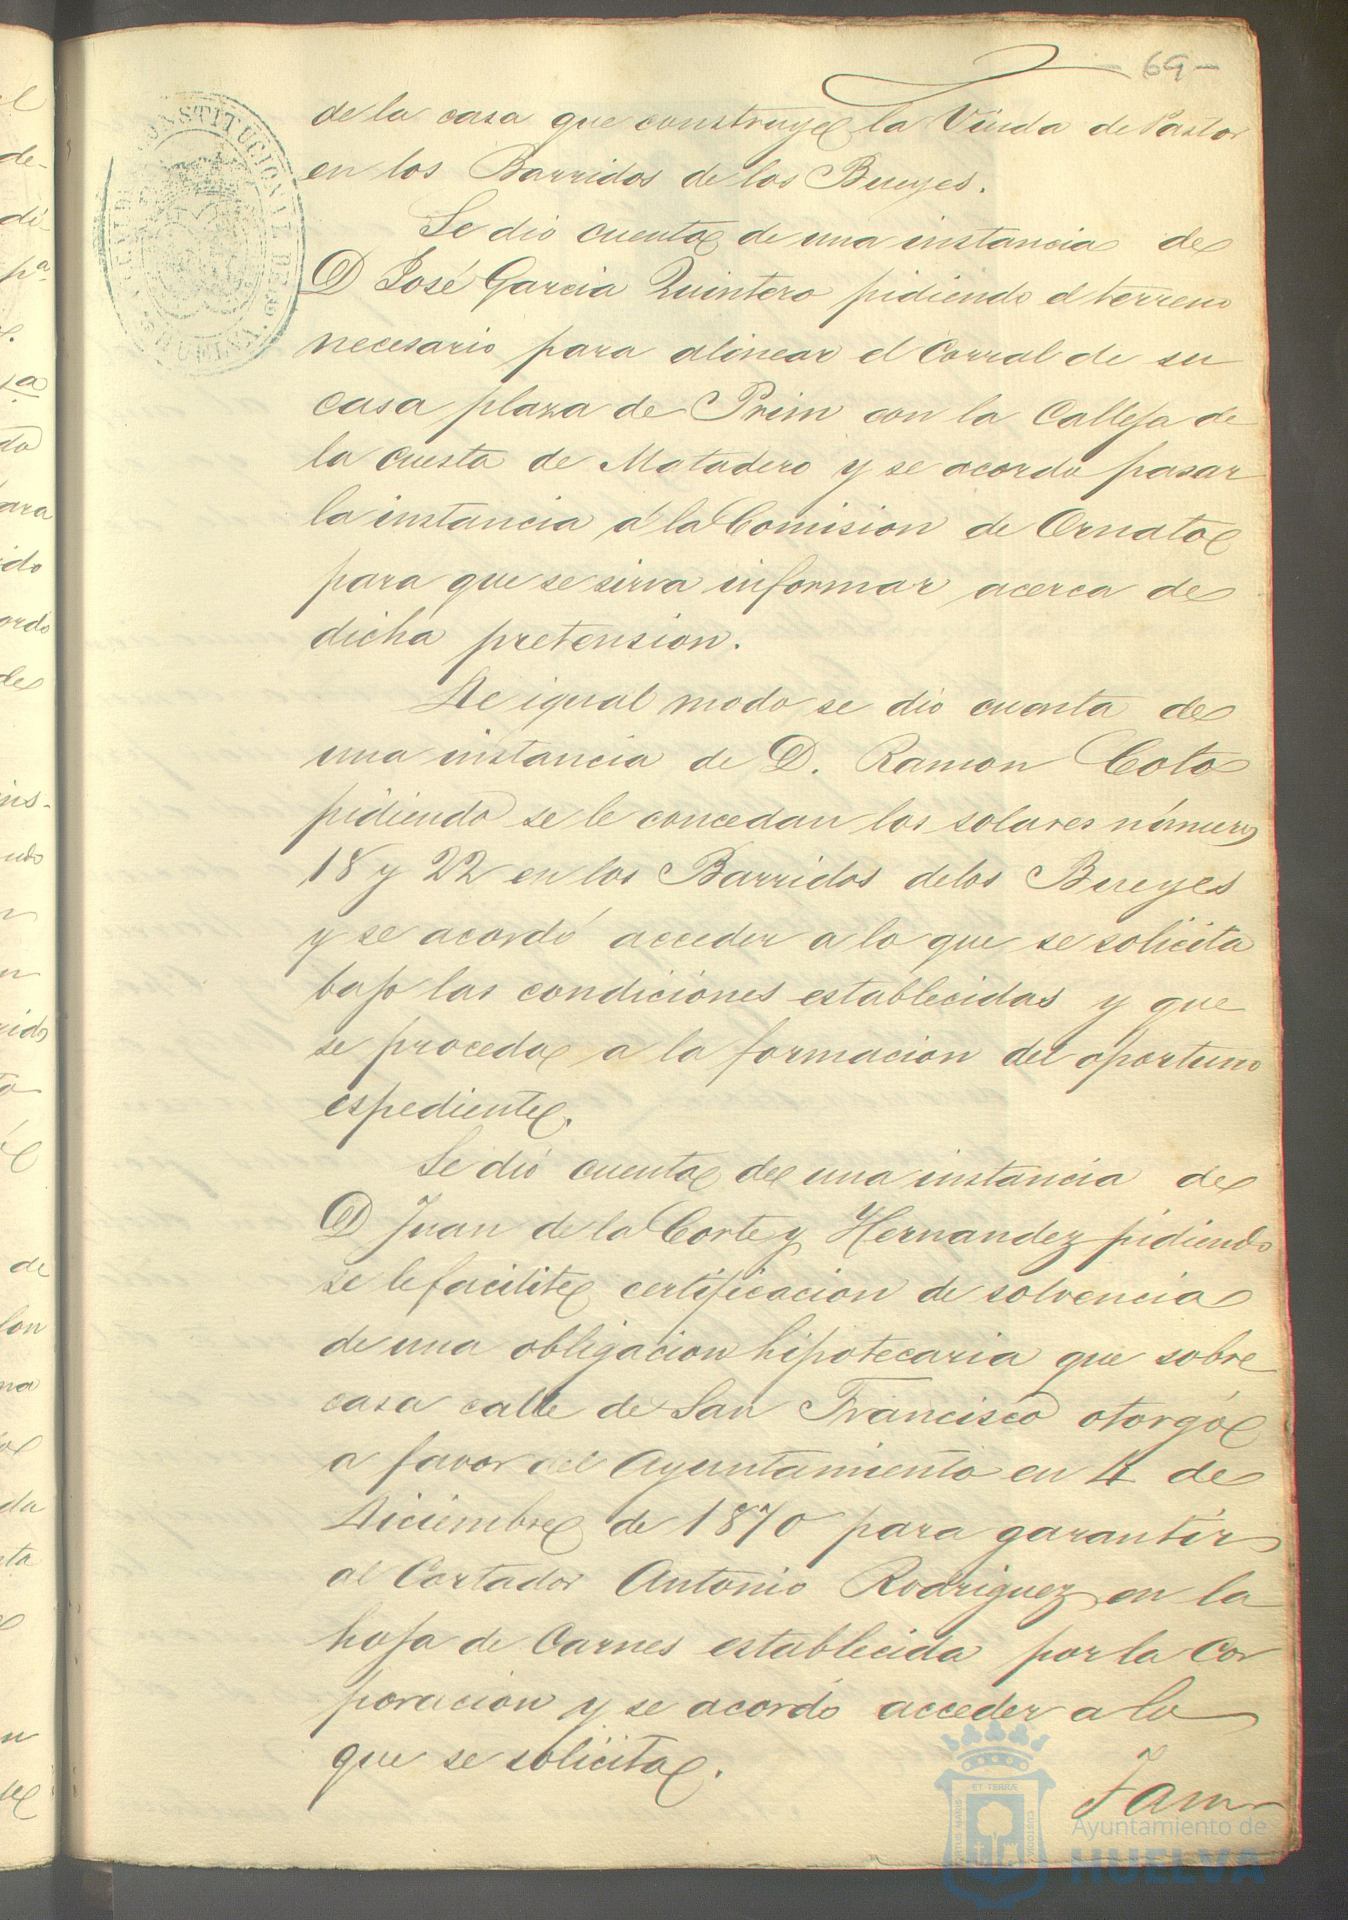 - 69 -
de la casa que construye la Viuda de Pastor
en los Barridos de los Bueyes.
Se dió cuenta de una instancia de
D José Garcia Quintero pidiendo el terreno
necesario para alinear el Corral de su
casa plaza de Prim con la Calleja de
la cuesta de Matadero y se acordo pasar
la instancia á la Comision de Ornato
para que se sirva informar acerca de
dicha pretension.
De igual modo se dió cuenta de
una instancia de D. Ramon Coto
pidiendo se le concedan los solares números
18 y 22 en los Barridos de los Bueyes
y se acordó acceder a lo que se solicita
bajo las condiciones establecidas y que
se proceda a la formacion del oportuno
espediente.
Se dió cuenta de una instancia de
D Juan de la Corte y Hernandez pidiendo
se le facilite certificacion de solvencia
de una obligacion hipotecaria que sobre
casa calle de San Francisco otorgó
a favor del Ayuntamiento en 4 de
Diciembre de 1870 para garantir
al Cortador Antonio Rodriguez en la
hoja de Carnes establecida por la Cor
poracion y se acordó acceder a lo
que se solicita.
Tam
CONSTITUCIONAL DE HUELVA
ET TERRÆ
PORTUS MARIS
CUSTODIA
Ayuntamiento de
HUELVA